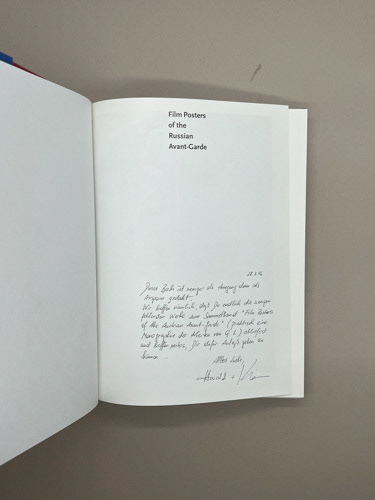 Film Posters
of the
Russian
Avant-Garde
Dieses Buch ist weniger als Ausgang denn als
gedacht.
Wir hoffen nämlich, daß Du endlich die wenigen
fehlenden Werke zum Sammelband "Film Posters
of the Russian Avant-Garde" (praktisch eine
Monographie der Werke von G. L.) ablieferst
und hoffen weiters, Dir dafür geben zu
können ...
Alles Liebe,